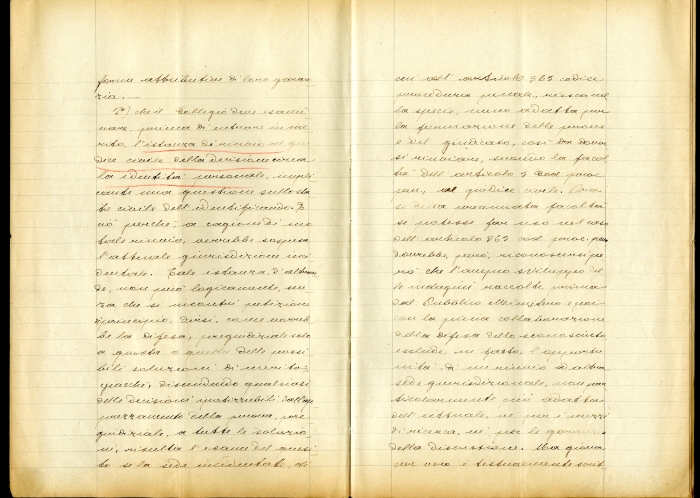 forme attributive di loro garan
zia. —
2°) che il Collegio deve esami
nare, prima di entrare in me
rito, l'istanza di rinvio al giu
dice civile della decisione circa
la identità personale, impli
cante una questione sullo sta
to civile dell'identificando. E
ciò perchè, a cagione di un
tale rinvio, verrebbe sospesa
l'attuale giurisdizione inci
dentale. Tale istanza, d'altron
de, non può logicamente, sen
za che si incontri petizione
di principio, dirsi, come vorreb
be la difesa, pregiudiziale solo
a questa o quella delle possi
bili soluzioni di merito:
giacchè, discendendo qualsiasi
delle decisioni ipotizzabili dall'ap
prezzamento della prova, pre
giudiziale, a tutte le soluzio
ni, risulta l'esame del quesi
to se la sede incidentale, di
cui all'articolo 863 codice
procedura penale, riesca nel
la specie, meno adatta per
la formazione delle prove
e del giudicato, così da dover
si rinviare, secondo la facol
tà dell'articolo 3 cod. proc.
pen., al giudice civile. Ora
se della preannunziata facoltà
si potesse far uso nel caso
dell'articolo 863 cod. proc. pen.
dovrebbe, però, riconoscersi pe
rò che l'ampio sviluppo del
le indagini raccolte prima
dal Pubblico Ministero e poi
con la piena collaborazione
della difesa dello sconosciuto,
esclude, in fatto, l'opportu
nità di un rinvio ad altra
sede giurisdizionale, non par
ticolarmente più adatta
dell'attuale, nè per i mezzi
di ricerca, nè per le garanzie
della discussione. Ma giova